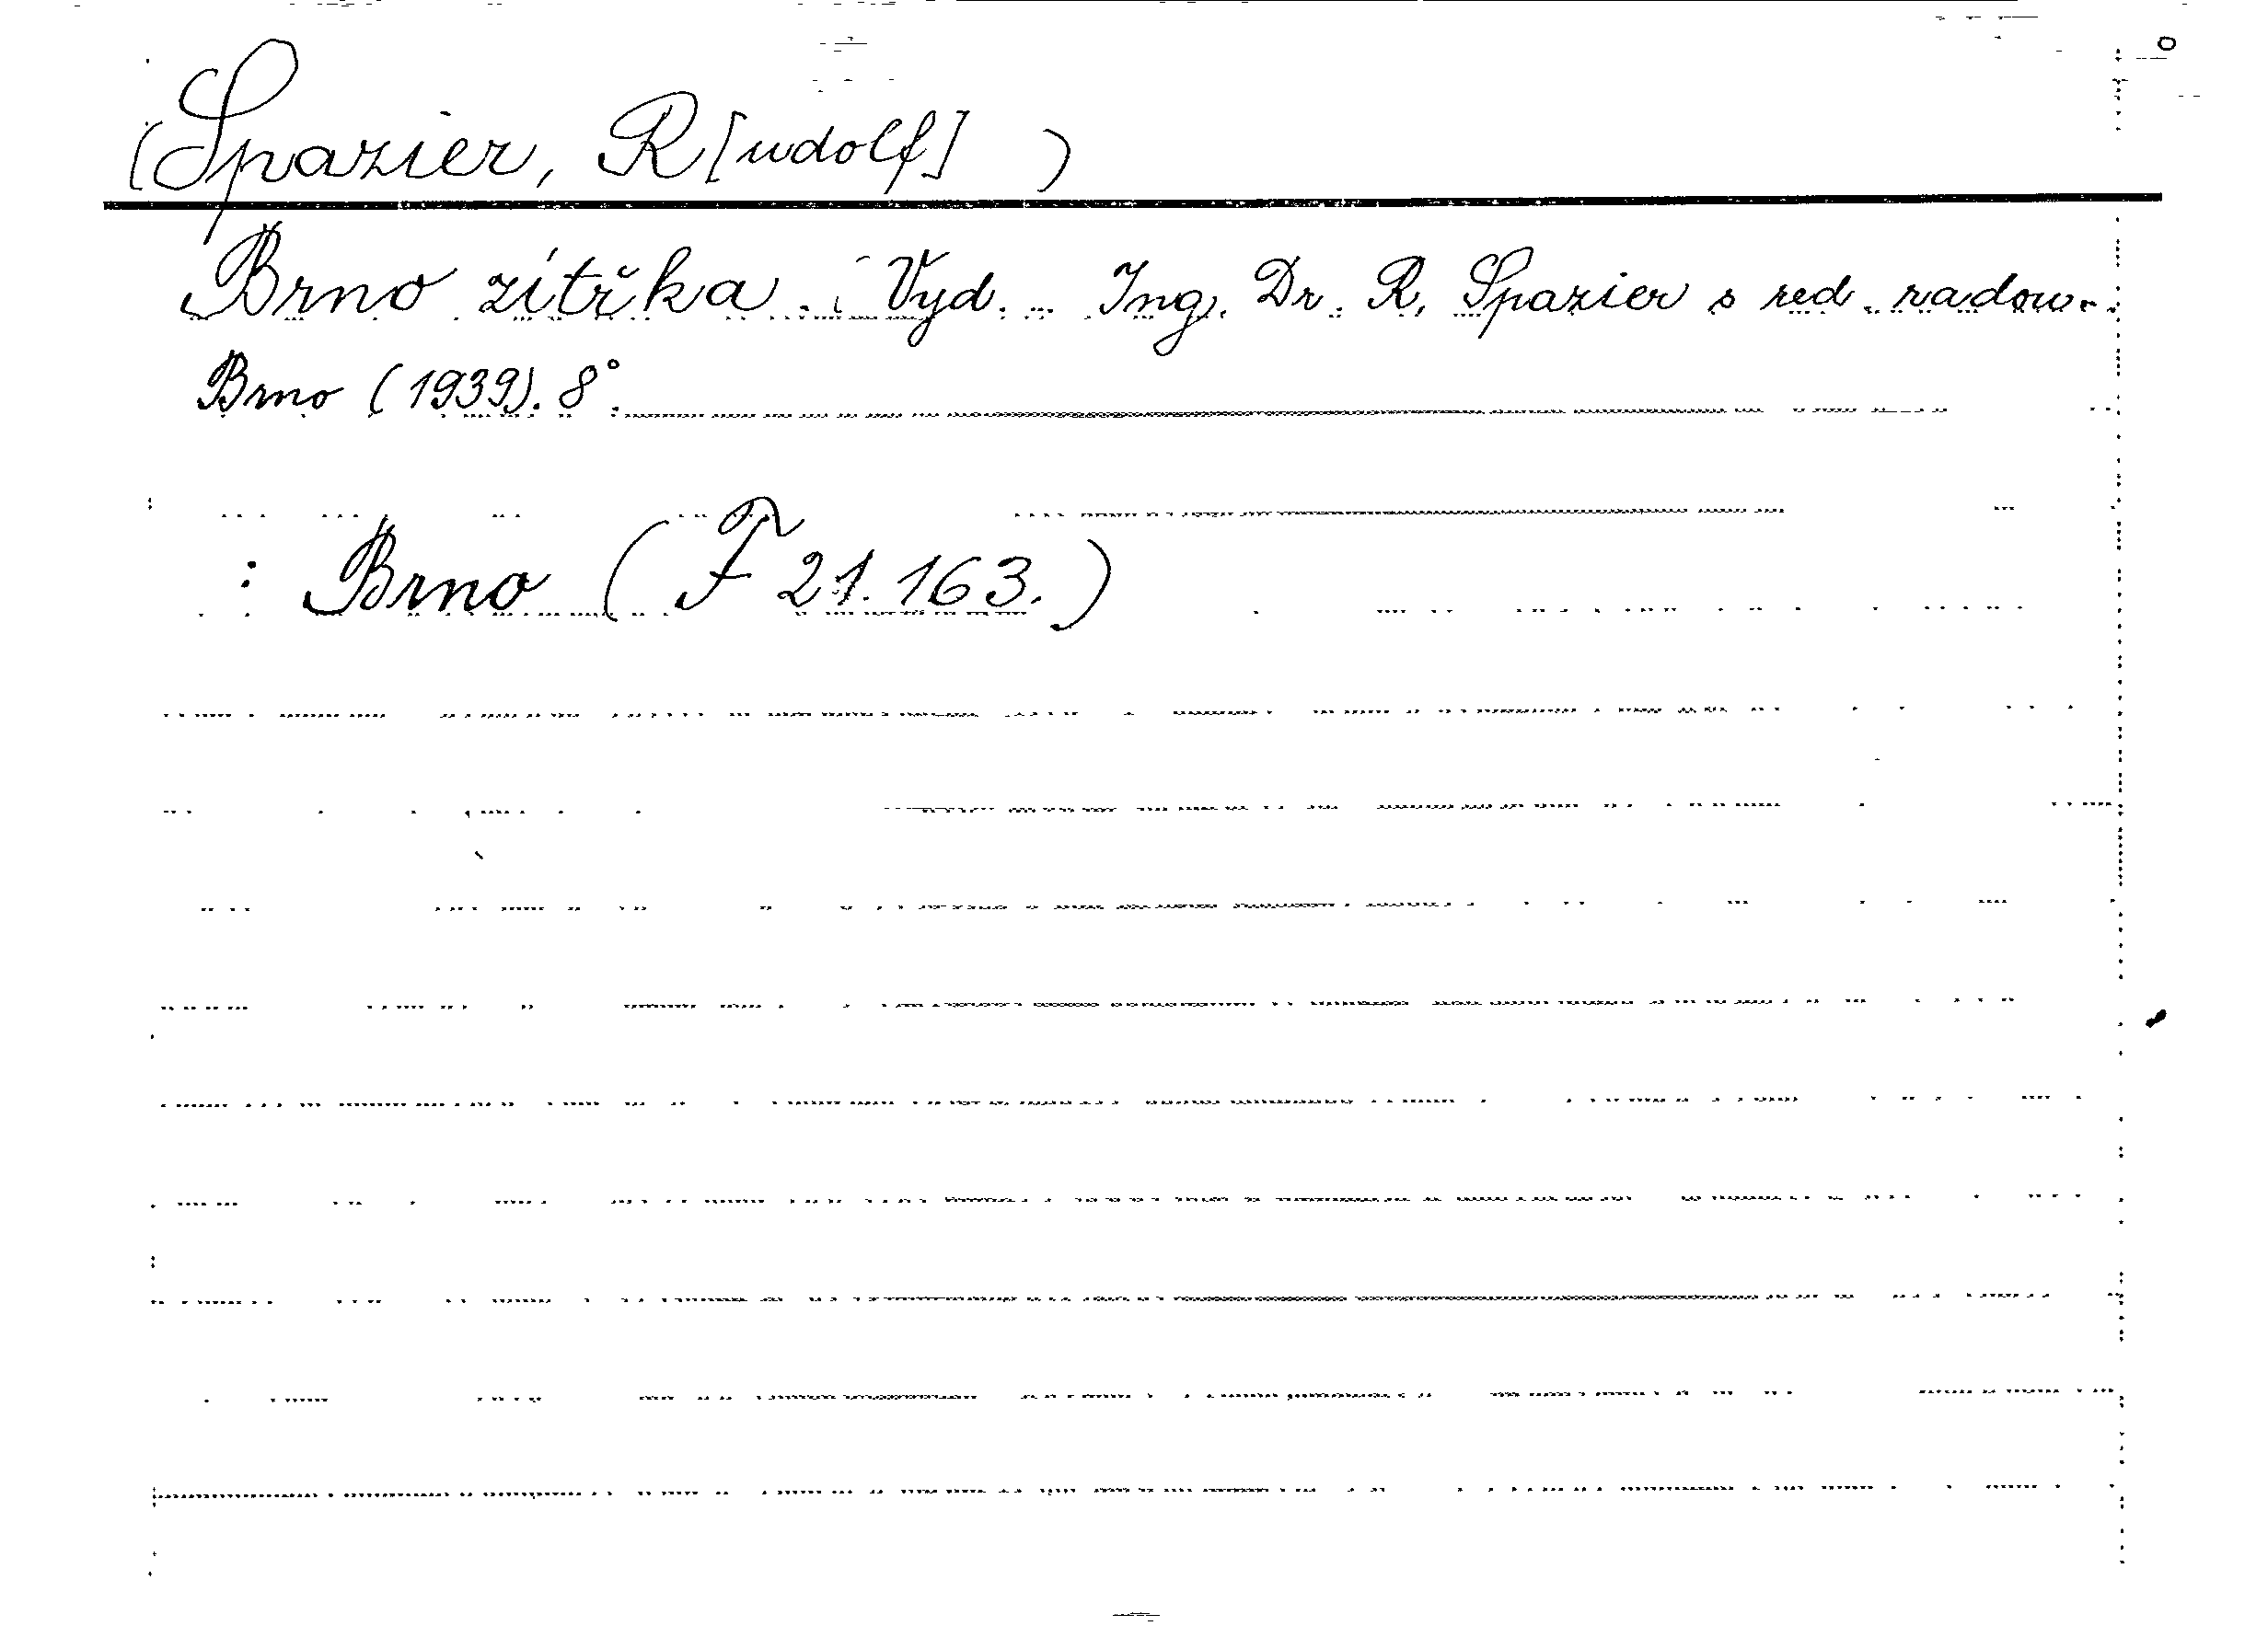 (Spazier, R[udolf] )
Brno zítřka. Vyd. .. Ing. Dr. R. Spazier s red. radou.
Brno (1939). 8°.
: Brno (F 21.163.)